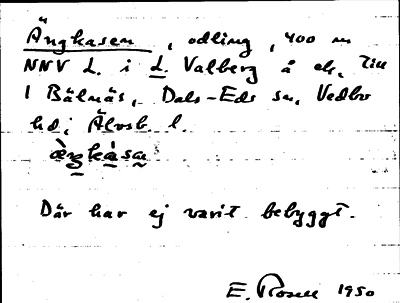 Ängkasen, odling, 400 m
NNV L. i L. Valberg å ek. Till
1 Bälnäs, Dals-Eds sn, Vedbo
hd, Älvsb. l.
æ̀ŋkásæn
Där har ej varit bebyggt.
E. Rosell 1950